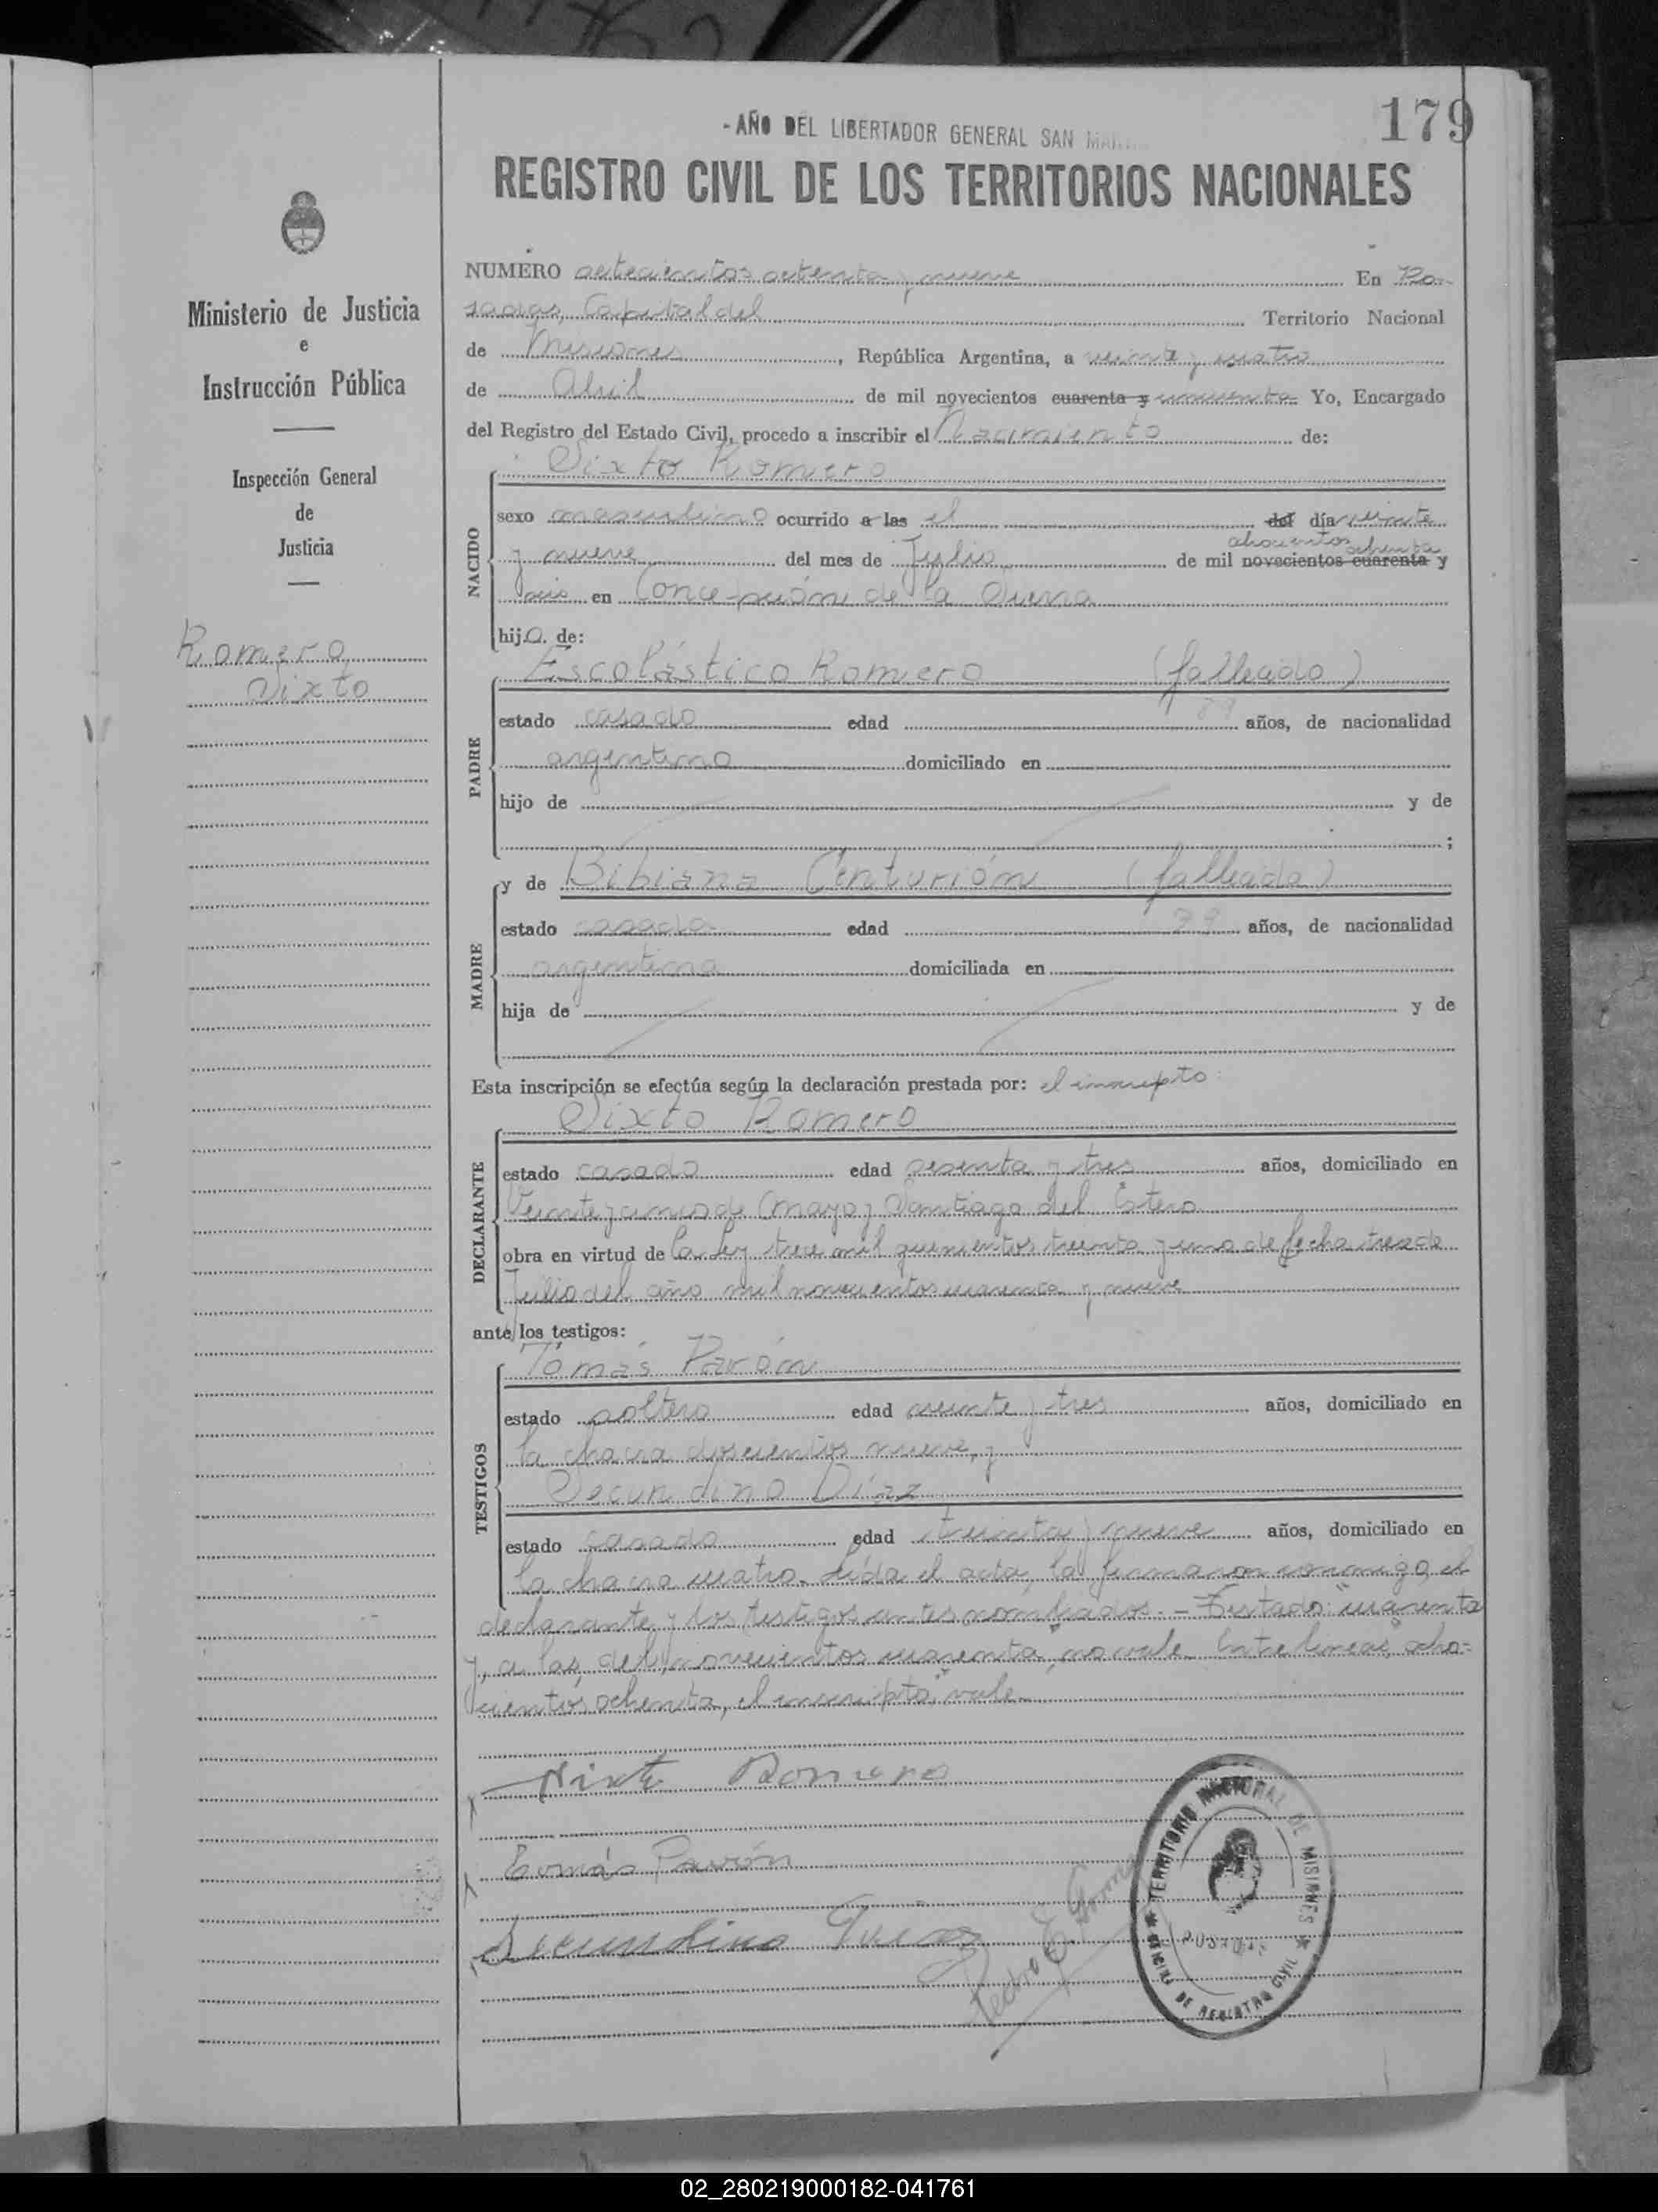 179
- AÑO DEL LIBERTADOR GENERAL SAN
REGISTRO CIVIL DE LOS TERRITORIOS NACIONALES
Ministerio de Justicia
e
Instrucción Pública
Inspección General
de
Justicia
Romero
Sixto
NUMERO setecientos setenta y nueve En Po-
sadas, Capital del Territorio Nacional
de Misiones, República Argentina, a veinte y cuatro
de Abril de mil novecientos cuarenta y cincuenta Yo, Encargado
del Registro del Estado Civil, procedo a inscribir el Nacimiento de:
Sixto Romero
NACIDO
sexo masculino ocurrido a las el del día veinte
ochocientos ochenta
y nueve del mes de Julio de mil novecientos cuarenta y
seis en Concepción de la Sierra
hijo de:
PADRE
Escolástico Romero (fallecido)
estado casado edad años, de nacionalidad
argentino domiciliado en
hijo de y de
;
MADRE
y de Bibiana Centurión (fallecida)
estado casada edad 79 años, de nacionalidad
argentina domiciliada en
hija de y de
Esta inscripción se efectúa según la declaración prestada por: el inscripto
DECLARANTE
Sixto Romero
estado casado edad sesenta y tres años, domiciliado en
Veinte y cinco de Mayo y Santiago del Estero
obra en virtud de la Ley trece mil quinientos treinta y uno de fecha trece de
Julio del año mil novecientos cuarenta y nueve
ante los testigos:
TESTIGOS
Tomás Pavón
estado soltero edad veinte y tres años, domiciliado en
la chacra doscientos nueve, y
Secundino Díaz
estado casado edad treinta y nueve años, domiciliado en
la chacra cuatro. Leída el acta, la firmaron conmigo, el
declarante y los testigos antes nombrados. - Testado: "cuarenta
y, a las, del, novecientos cuarenta" no vale. Entre lineas "ocho-
cientos ochenta, el inscripto" vale.
Sixto Romero
Tomás Pavón
Secundino Díaz
Pedro E.
TERRITORIO NACIONAL DE MISIONES
POSADAS
OFICINA DE REGISTRO CIVIL
02_280219000182-041761